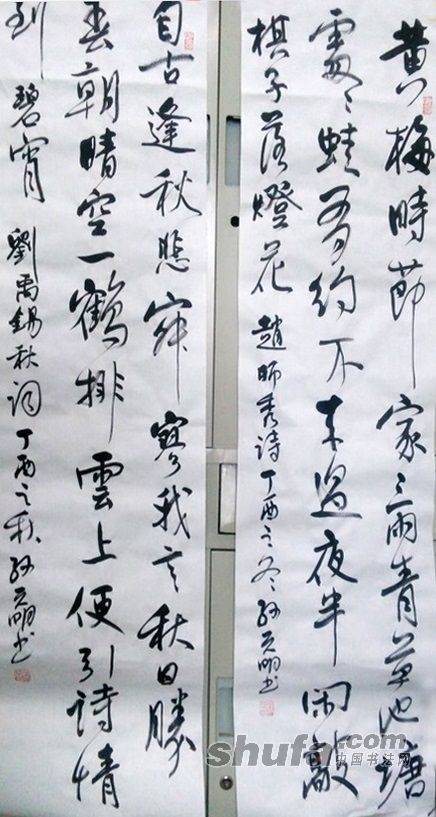 黄梅時節家々雨青草池塘
處々蛙有約不来過夜半闲敲
棋子落燈花 趙師秀詩丁酉之冬孙明书
自古逢秋悲寂寥我言秋日勝
春朝晴空一鶴排雲上便引詩情
到碧霄 劉禹錫秋词丁酉之秋孙明书
shufa.com
中国书法网